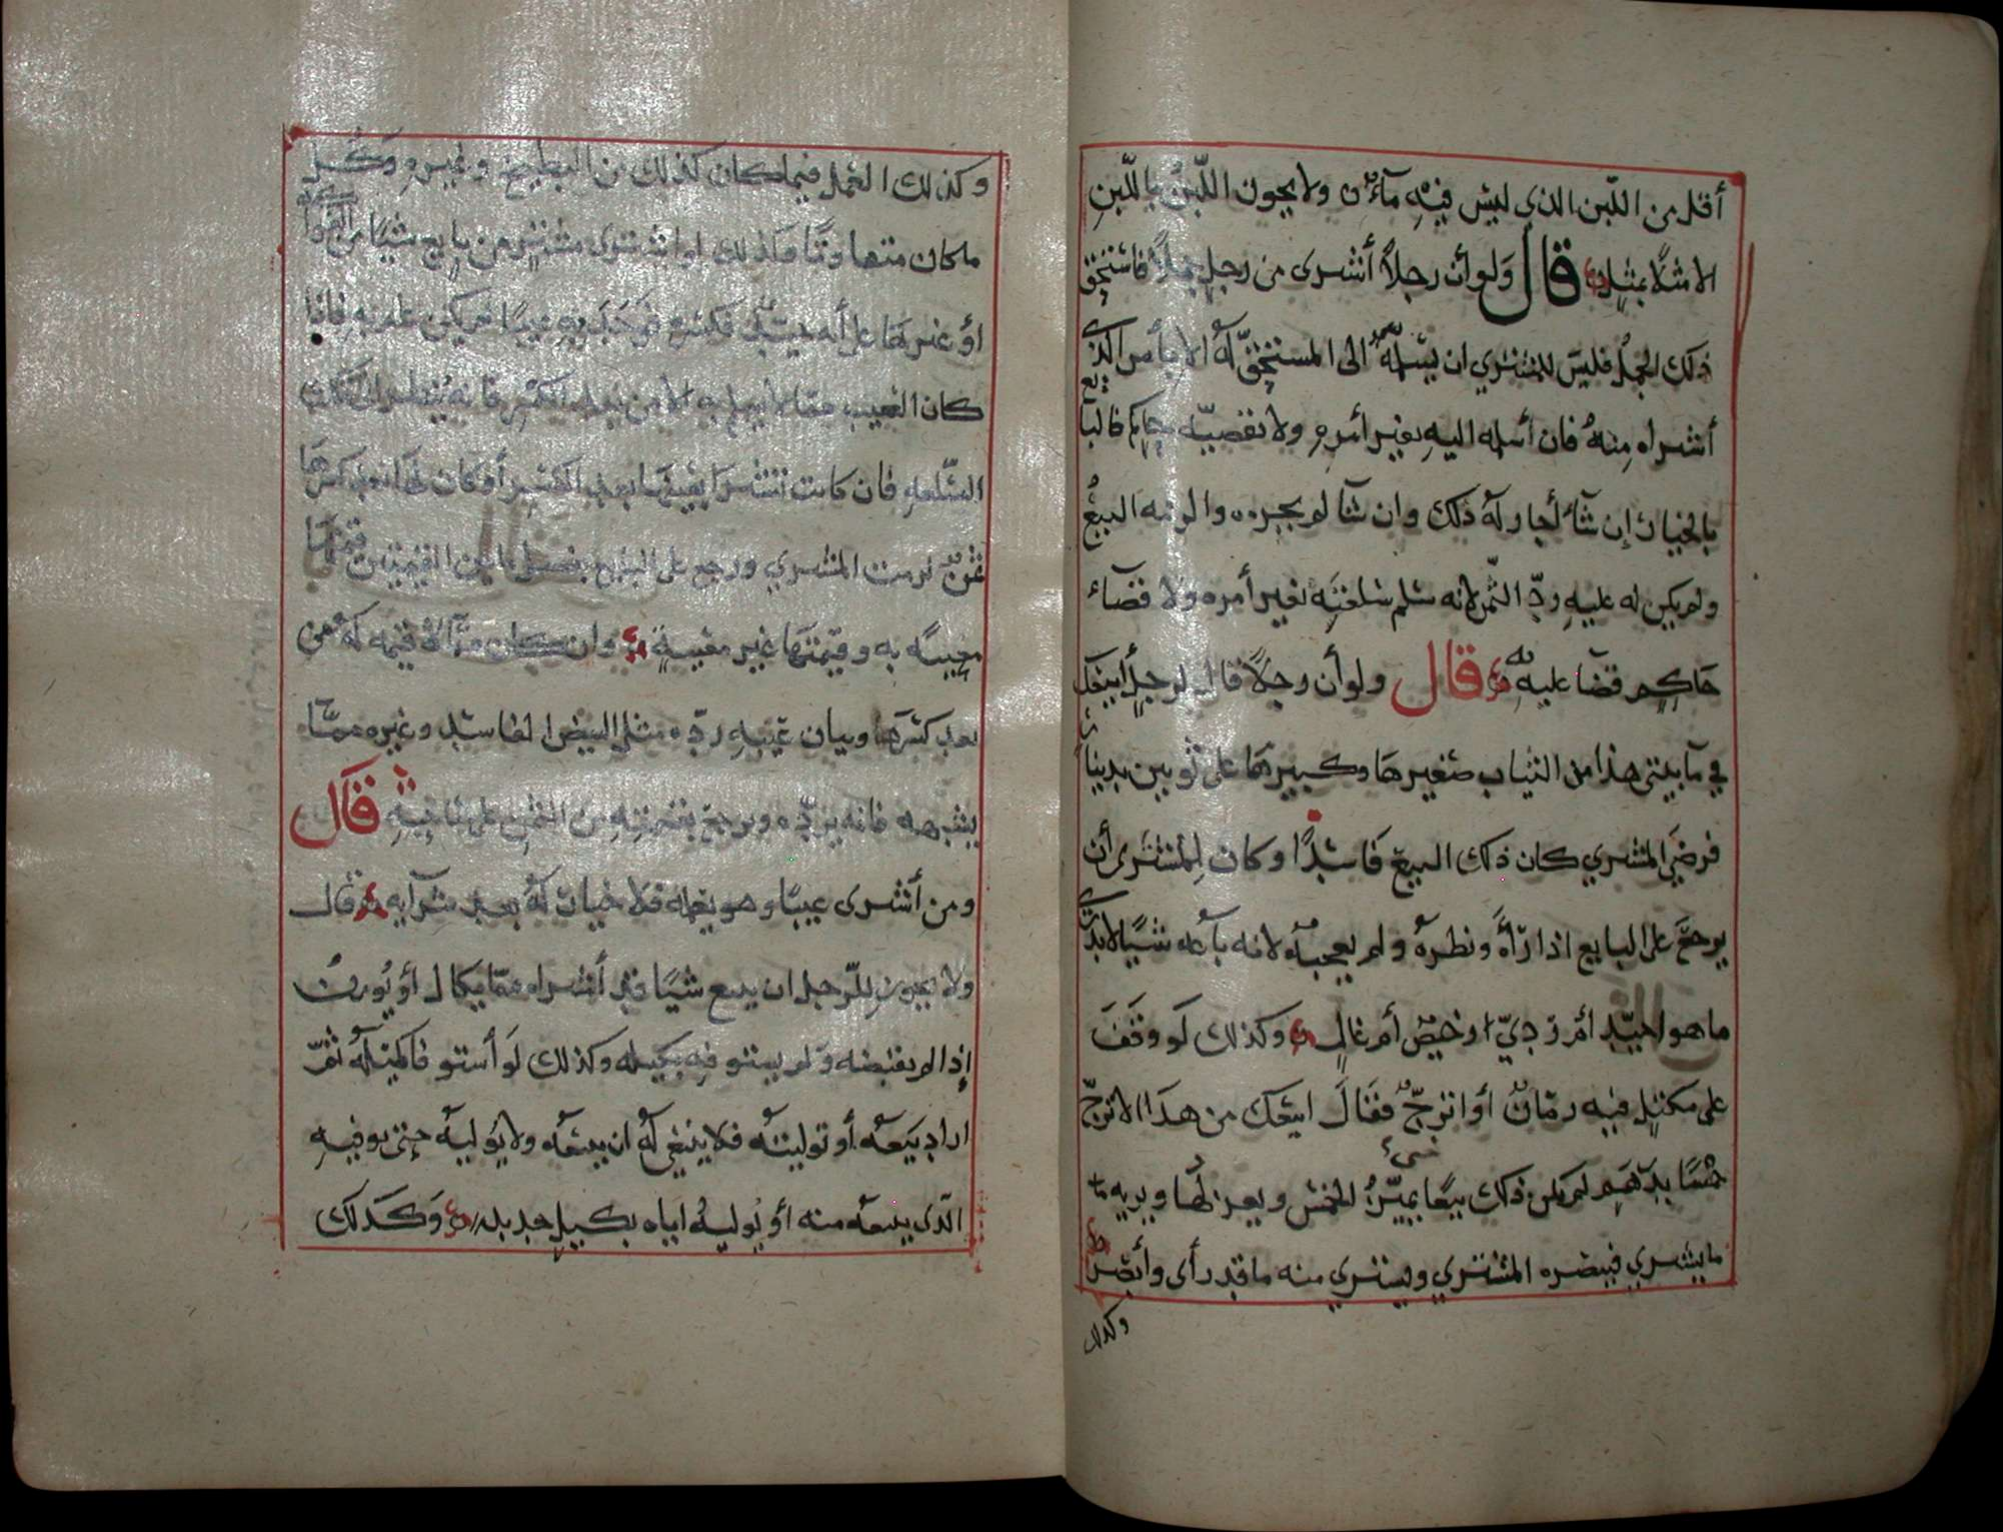 أقل من اللّبن الذي ليس فيه مآءٌ ولا يجوز اللّبنُ باللّبنِ
الا مثلًا بمثل قال ولو أن رجلاً أشترى من رجلٍ جملاً فاستحق
ذلك الجملُ فليس للمشتري ان يسلمه الى المستحقّ له الا بأمر الذي
أشتراه منهُ فان أسلمه اليه بغير أمره ولا بقضية حاكم فالبايع
بالخيار إن شآء أجاز له ذلك وان شآ لم يجزه والزمه البيعُ
ولم يكن له عليه ردّ الثّمن لانه سلم سلعته بغير أمره ولا قضآء
حاكمٍ قضا عليه به قال ولو أن رجلاً قال لرجلٍ أبيعك
في مآ بيتي هذا من الثياب صغيرها وكبيرها على ثوبين بدينار
فرضي المشتري كان ذلك البيع فاسدًا وكان للمشترى أن
يرجع على البايع اذا رَأه ونظره ولم يعجبه لانه باعه شيئًا لا يدرى
ما هو اجيّد أم رديّ ارخيصٌ أم غالٍ وكذلك لو وقف
على مكتلٍ فيه رمّانٌ أو اترجّ فقال ابيعك من هذا الاترجّ
خمسًا بدرهم لم يكن ذلك بيعًا شيء يميّزُ الخمس ويعزلها ويريه ما
ما يشتري فيبصره المشتري ويشتري منه ما قد رأى وأبصر
وكذلك
وكذلك العمل فيما كان كذلك من البطيخ وغيره وكُل
ما كان متهاوتًا وكذلك لو اشترى مشترٍ من بايع شيئًا من
أو غيرها على أنه فكسره فوجد به عيبًا لم يكن علم به فاذا
كان العيب ممّا لا يعلم به الا من بعد الكسر فانه ينظر
السّلعه فان كانت تشترا بعيبها بعد الكسر أو كان لها بعد كسرها
ثمنٌ لزمت المشتري ورجع على البايع بفضل ما بين القيمتين قيمتها
معيبه به وقيمتها غير معيبةٍ وان كان ممّا لا قيمه له ثمن
بعد كسرها وبيان عيبه ردّه مثل البيض الفاسد وغيره ممّا
يشبهه فانه يردّه ويرجع بقيمته من الثمن على بايعه قال
ومن أشترى عيبًا وهو يعلمه فلا خيار له بعد شرآيه قال
ولا يجوز للرّجل ان يبيع شيئًا قد أشتراه ممّا يكال أو يُوزن
إذا لم يقبضه ولم يستوفه بكيله وكذلك لو أستوفا كيله ثمّ
اراد بيعه أو توليته فلا ينبغي له ان يبيعه ولا يوليه حتى يوفيه
الّذى يبيعه منه أو يُوليهُ اياه بكيلٍ جديد وكذلك